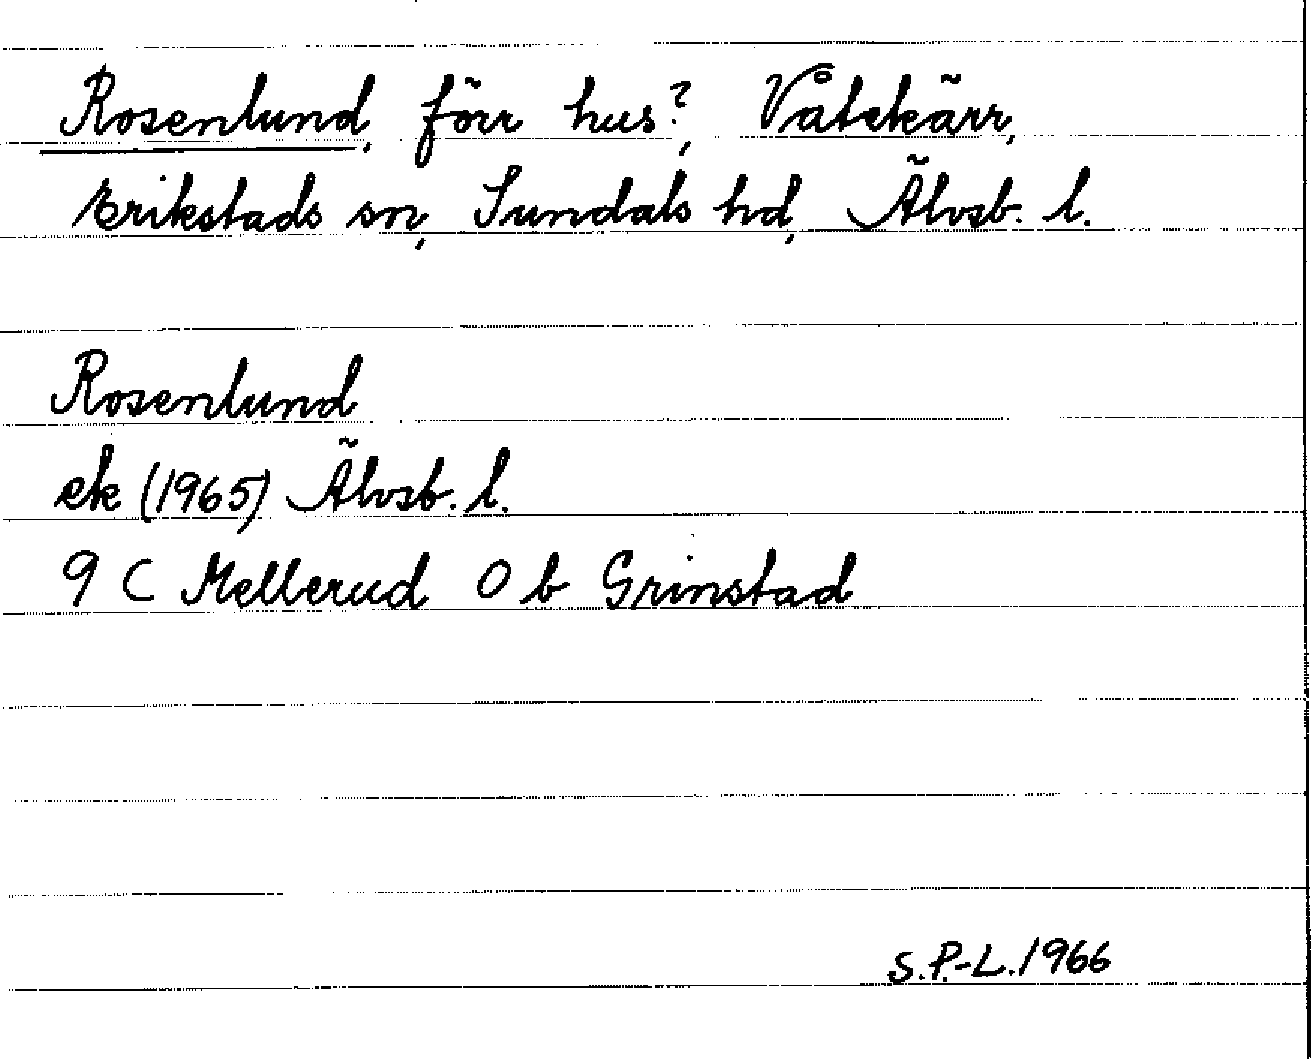 Rosenlund, förr hus?, Våtskärr,
Erikstads sn, Sundals hd, Älvsb. l.
Rosenlund
ek (1965) Älvsb. l.
9 C Mellerud O b Grinstad
S.P.-L. 1966